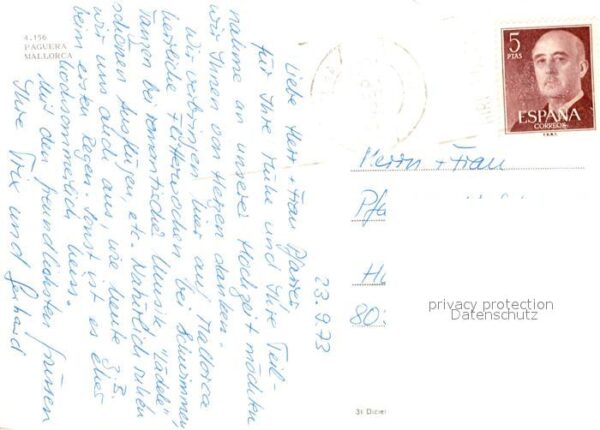 4.156
PAGUERA
MALLORCA
23.9.73
Liebe Herr, Frau Pfarrer,
für Ihre Mühe und Ihre Teil-
nahme an unserer Hochzeit möchten
wir Ihnen von Herzen danken.
Wir verbringen hier auf Mallorca
herrliche Flitterwochen bei Schwimmen,
Tanzen bei romantische Musik, "Lädele",
schönen Ausflügen, etc. Natürlich ruhen
wir uns auch aus, wie heute z.B.
beim ersten Regen. Sonst ist es
hochsommerlich heiss.
Mit den freundlichsten Grüssen
Ihre Trix und Gerhard
5
PTAS
ESPAÑA
CORREOS
F.N.M.T.
Herrn + Frau
Pfa
H
80
privacy protection
Datenschutz